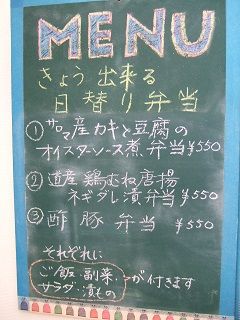 MENU
きょう出来る
日替り弁当
① サロマ産カキと豆腐の
オイスターソース煮弁当 ¥550
② 道産鶏むね唐揚
ネギダレ漬弁当 ¥550
③ 酢豚弁当 ¥550
それぞれに
ご飯.副菜.
サラダ.漬もの
が付きます